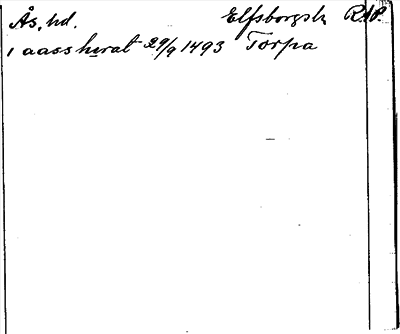 Ås, hd. Elfsborgsl. RAP.
i aass hęrat 29/9 1493 Torpa